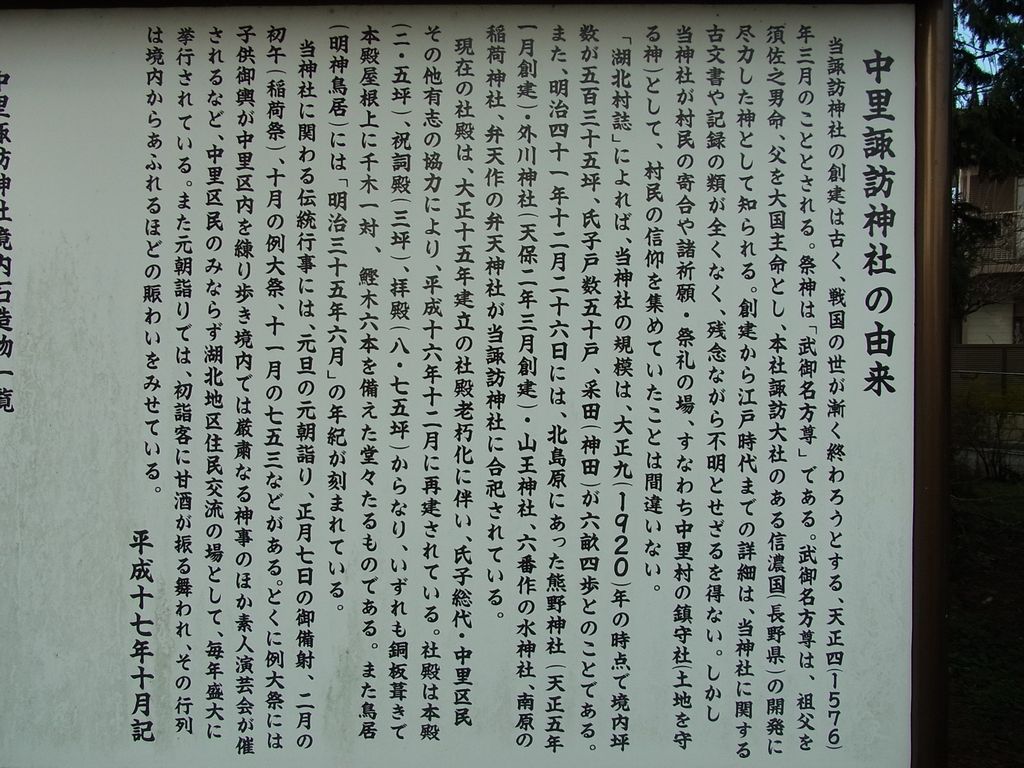 中里諏訪神社の由来
当諏訪神社の創建は古く、戦国の世が漸く終わろうとする、天正四(1576)
年三月のこととされる。祭神は「武御名方尊」である。武御名方尊は、祖父を
須佐之男命、父を大国主命とし、本社諏訪大社のある信濃国(長野県)の開発に
尽力した神として知られる。創建から江戸時代までの詳細は、当神社に関する
古文書や記録の類が全くなく、残念ながら不明とせざるを得ない。しかし
当神社が村民の寄合や諸祈願・祭礼の場、すなわち中里村の鎮守社(土地を守
る神)として、村民の信仰を集めていたことは間違いない。
「湖北村誌」によれば、当神社の規模は、大正九(1920)年の時点で境内坪
数が五百三十五坪、氏子戸数五十戸、采田(神田)が六畝四歩とのことてある。
また、明治四十一年十二月二十六日には、北島原にあった熊野神社(天正五年
一月創建)・外川神社(天保二年三月創建)・山王神社、六番作の水神社、南原の
稲荷神社、弁天作の弁天神社が当諏訪神社に合祀されている。
現在の社殿は、大正十五年建立の社殿老朽化に伴い、氏子総代・中里区民
その他有志の協力により、平成十六年十二月に再建されている。社殿は本殿
(二・五坪)、祝詞殿(三坪)、拝殿(八・七五坪)からなり、いずれも銅板葺きで
本殿屋根上に千木一対、鰹木六本を備えた堂々たるものである。また鳥居
(明神鳥居)には「明治三十五年六月」の年紀が刻まれている。
当神社に関わる伝統行事には、元旦の元朝詣り、正月七日の御備射、二月の
初午(稲荷祭)、十月の例大祭、十一月の七五三などがある。どくに例大祭には
子供御輿が中里区内を練り歩き境内では厳粛なる神事のほか素人演芸会が催
されるなど、中里区民のみならず湖北地区住民交流の場として、毎年盛大に
挙行されている。また元朝詣りでは、初詣客に甘酒が振る舞われ、その行列
は境内からあふれるほどの賑わいをみせている。
平成十七年十月記
中里諏訪神社境内石造物一覧